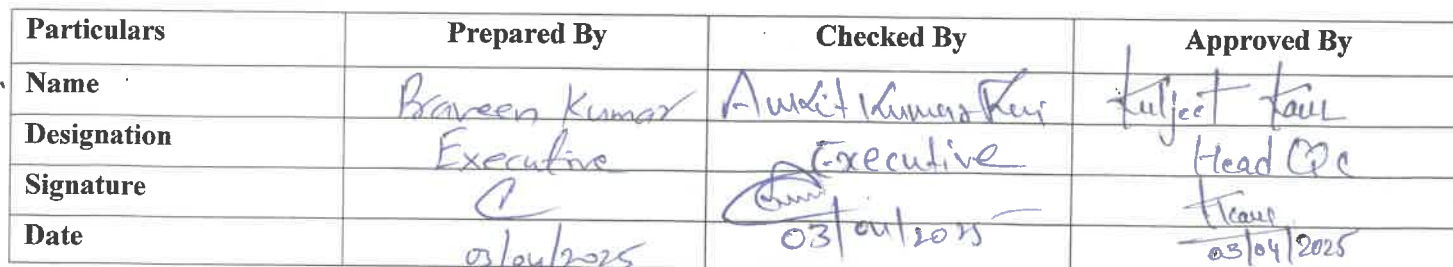 Particulars Prepared By Checked By Approved By
Name Braveen Kumar Ankit Kumar Kuljeet Kaur
Designation Executive Executive Head QC
Signature
Date 03/04/2025 03/04/2025 03/04/2025